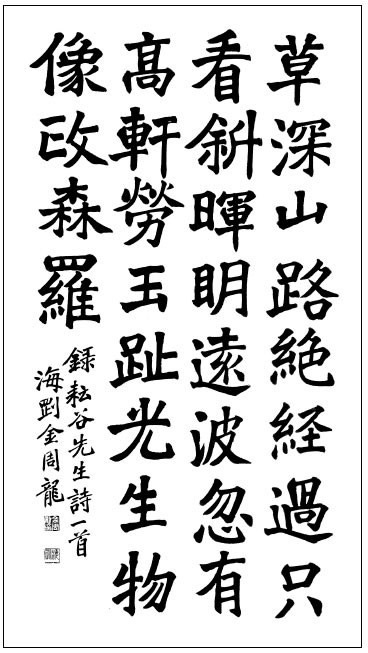 草深山路絶経過只
看斜暉明遠波忽有
高軒勞玉趾光生物
像改森羅
録耘谷先生詩一首
海劉金周龍